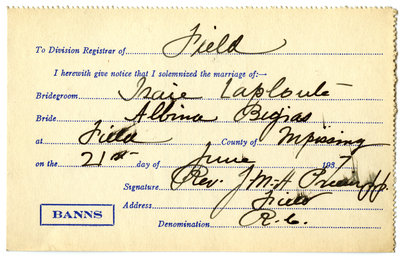 To Division Registrar of Field
I herewith give notice that I solemnized the marriage of:—
Bridegroom Isaie Laplante
Bride Albina Bigras
at Field County of Nipissing
on the 21st day of June 1937
Signature Rev. J.
Address Field
BANNS
Denomination R.C.